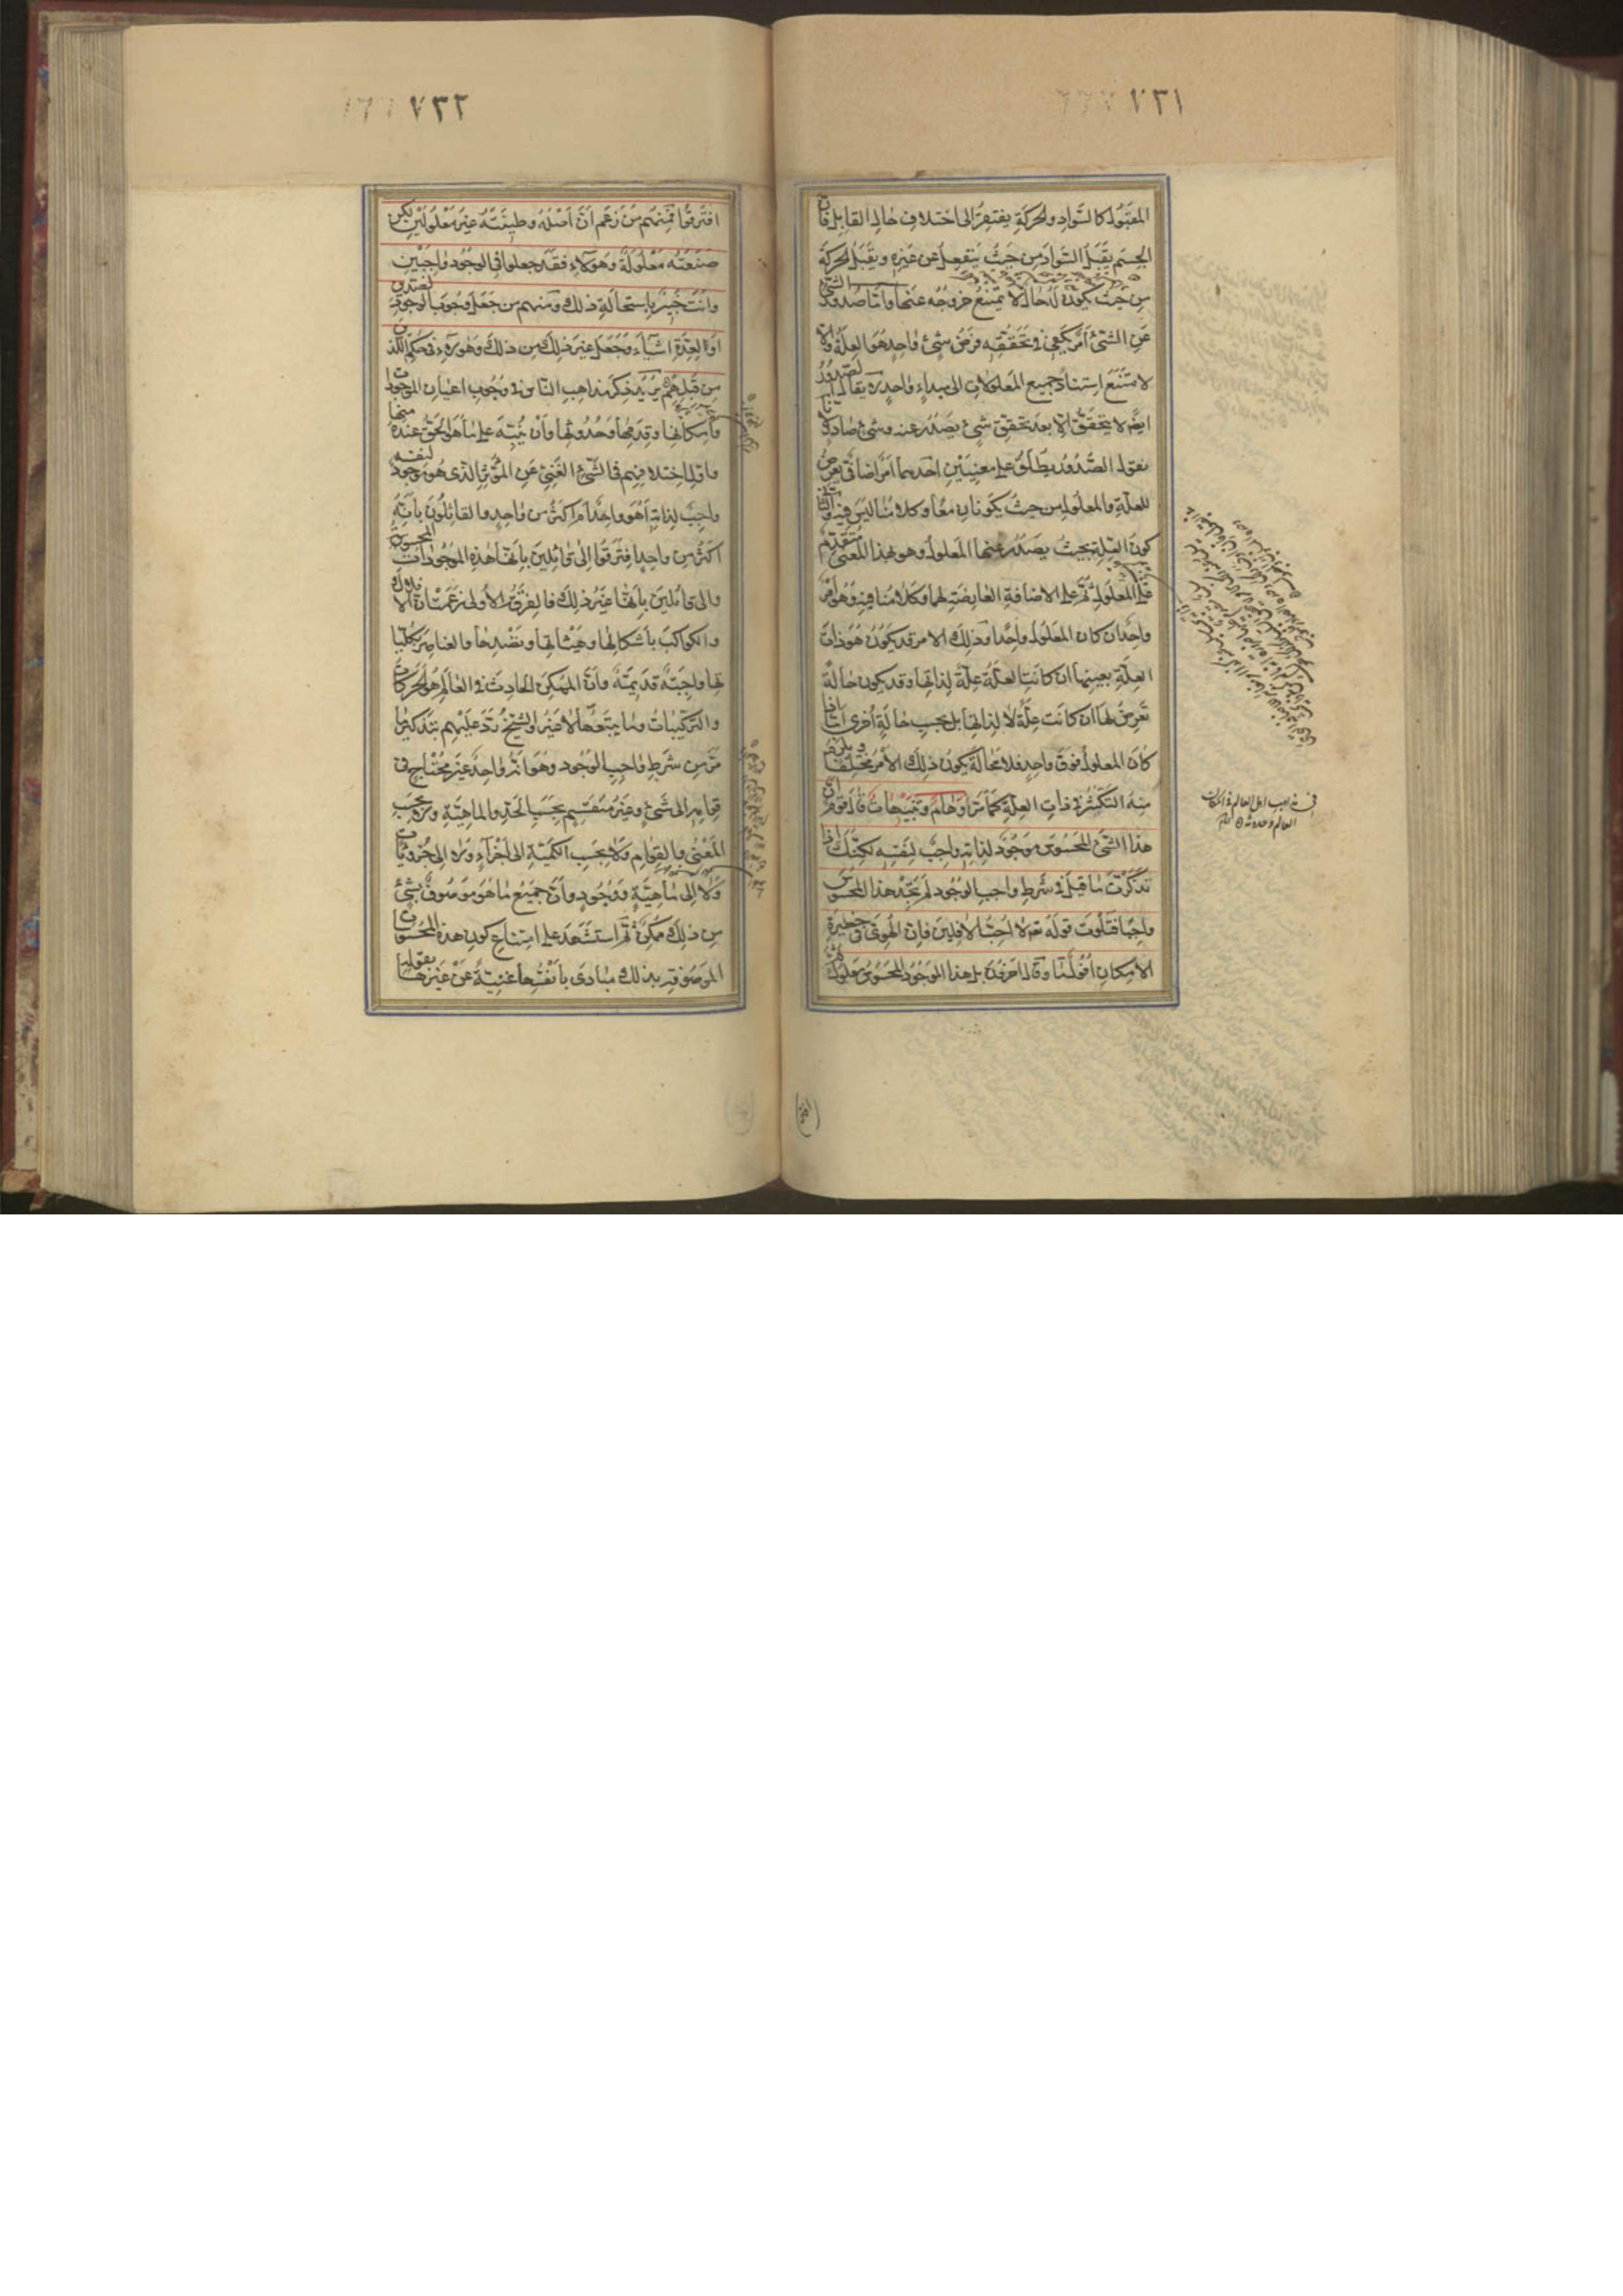 ٧٣١
المقبول كالسواد والحركة يفتقر الى اختلاف حال القابل فان
الجسم يقبل السواد من حيث ينفعل عن غيره ويقبل الحركة
من حيث يكون له حال لا يمتنع خروجه عنها واما صدور الشئ
عن الشئ امر يكفى فى تحققه فرض شئ واحد هو العلة والا
لامتنع استناد جميع المعلولات الى مبداء واحد لا يقال الصدور
ايضا لا يتحقق الا بعد تحقق شئ يصدر عنه وشئ صادر لانا
نقول الصدور يطلق على معنيين احدهما امر اضافى يعرض
للعلة والمعلول من حيث يكونان معا وكلامنا ليس فيه والثانى
كون العلة بحيث يصدر عنها المعلول وهو بهذا المعنى متقدم
على المعلول ثم على الاضافة العارضة لهما وكلامنا فيه وهو امر
واحد ان كان المعلول واحدا وذلك الامر قد يكون هو ذات
العلة بعينها ان كانت العلة علة لذاتها وقد يكون حالة
تعرض لها ان كانت علة لا لذاتها بل بحسب حالة اخرى اما اذا
كان المعلول فوق واحد فلا محالة يكون ذلك الامر مختلفا ويلزم
منه التكثر فى ذات العلة كما مر اوهام وتنبيهات قال قوم ان
هذا الشئ المحسوس موجود لذاته واجب لنفسه لكنك اذا
تذكرت ما قيل فى شرط واجب الوجود لم تجد هذا المحسوس
واجبا فتلوت قوله تع لا احب الافلين فان الهوى فى حظيرة
الامكان افول ما وقال اخرون بل هذا الموجود المحسوس معلول ثم
فى مذاهب اهل العالم فى امكان
العالم وحدوثه
٧٣٢
افترقوا فمنهم من زعم ان اصله وطينته غير معلولين لكن
صنعته معلولة وهؤلاء فقد جعلوا فى الوجود واجبين
وانت خبير باستحالة ذلك ومنهم من جعل وجوب الوجود لضدين
او لعدة اشياء وجعل غير ذلك من ذلك وهؤلاء فى حكم الذين
من قبلهم يريد ذكر مذاهب الناس فى وجوب اعيان الموجودات
وامكانها وقدمها وحدوثها وان ينبه على ما هو الحق عنده منها
واول اختلافهم فى الشئ الغنى عن المؤثر الذى هو موجود لنفسه
واجب لذاته اهو واحد ام اكثر من واحد والقائلون بانه
اكثر من واحد افترقوا الى قائلين بانها هذه الموجودات المحسوسة
والى قائلين بانها غير ذلك فالفرقة الاولى زعمت ان الافلاك
والكواكب باشكالها وهيئاتها ونضدها والعناصر بكلياتها
واجبة قديمة وان الممكن الحادث فى العالم هو الحركات
والتركيبات وما يتبعها لا غير والشيخ رد عليهم بتذكير ما
مر من شرط واجب الوجود وهو انه واحد غير محتاج فى
قوامه الى شئ وغير منقسم بحسب الحد والماهية ولا بحسب
المعنى والقوام ولا بحسب الكمية الى اجزاء ولا الى جزئيات
ولا الى ماهية ووجود وان جميع ما هو موصوف بشئ
من ذلك ممكن ثم استشهد على امتناع كون هذه المحسوسات
الموصوفة بذلك مبادى بانفسها غنية عن غيرها بقوله